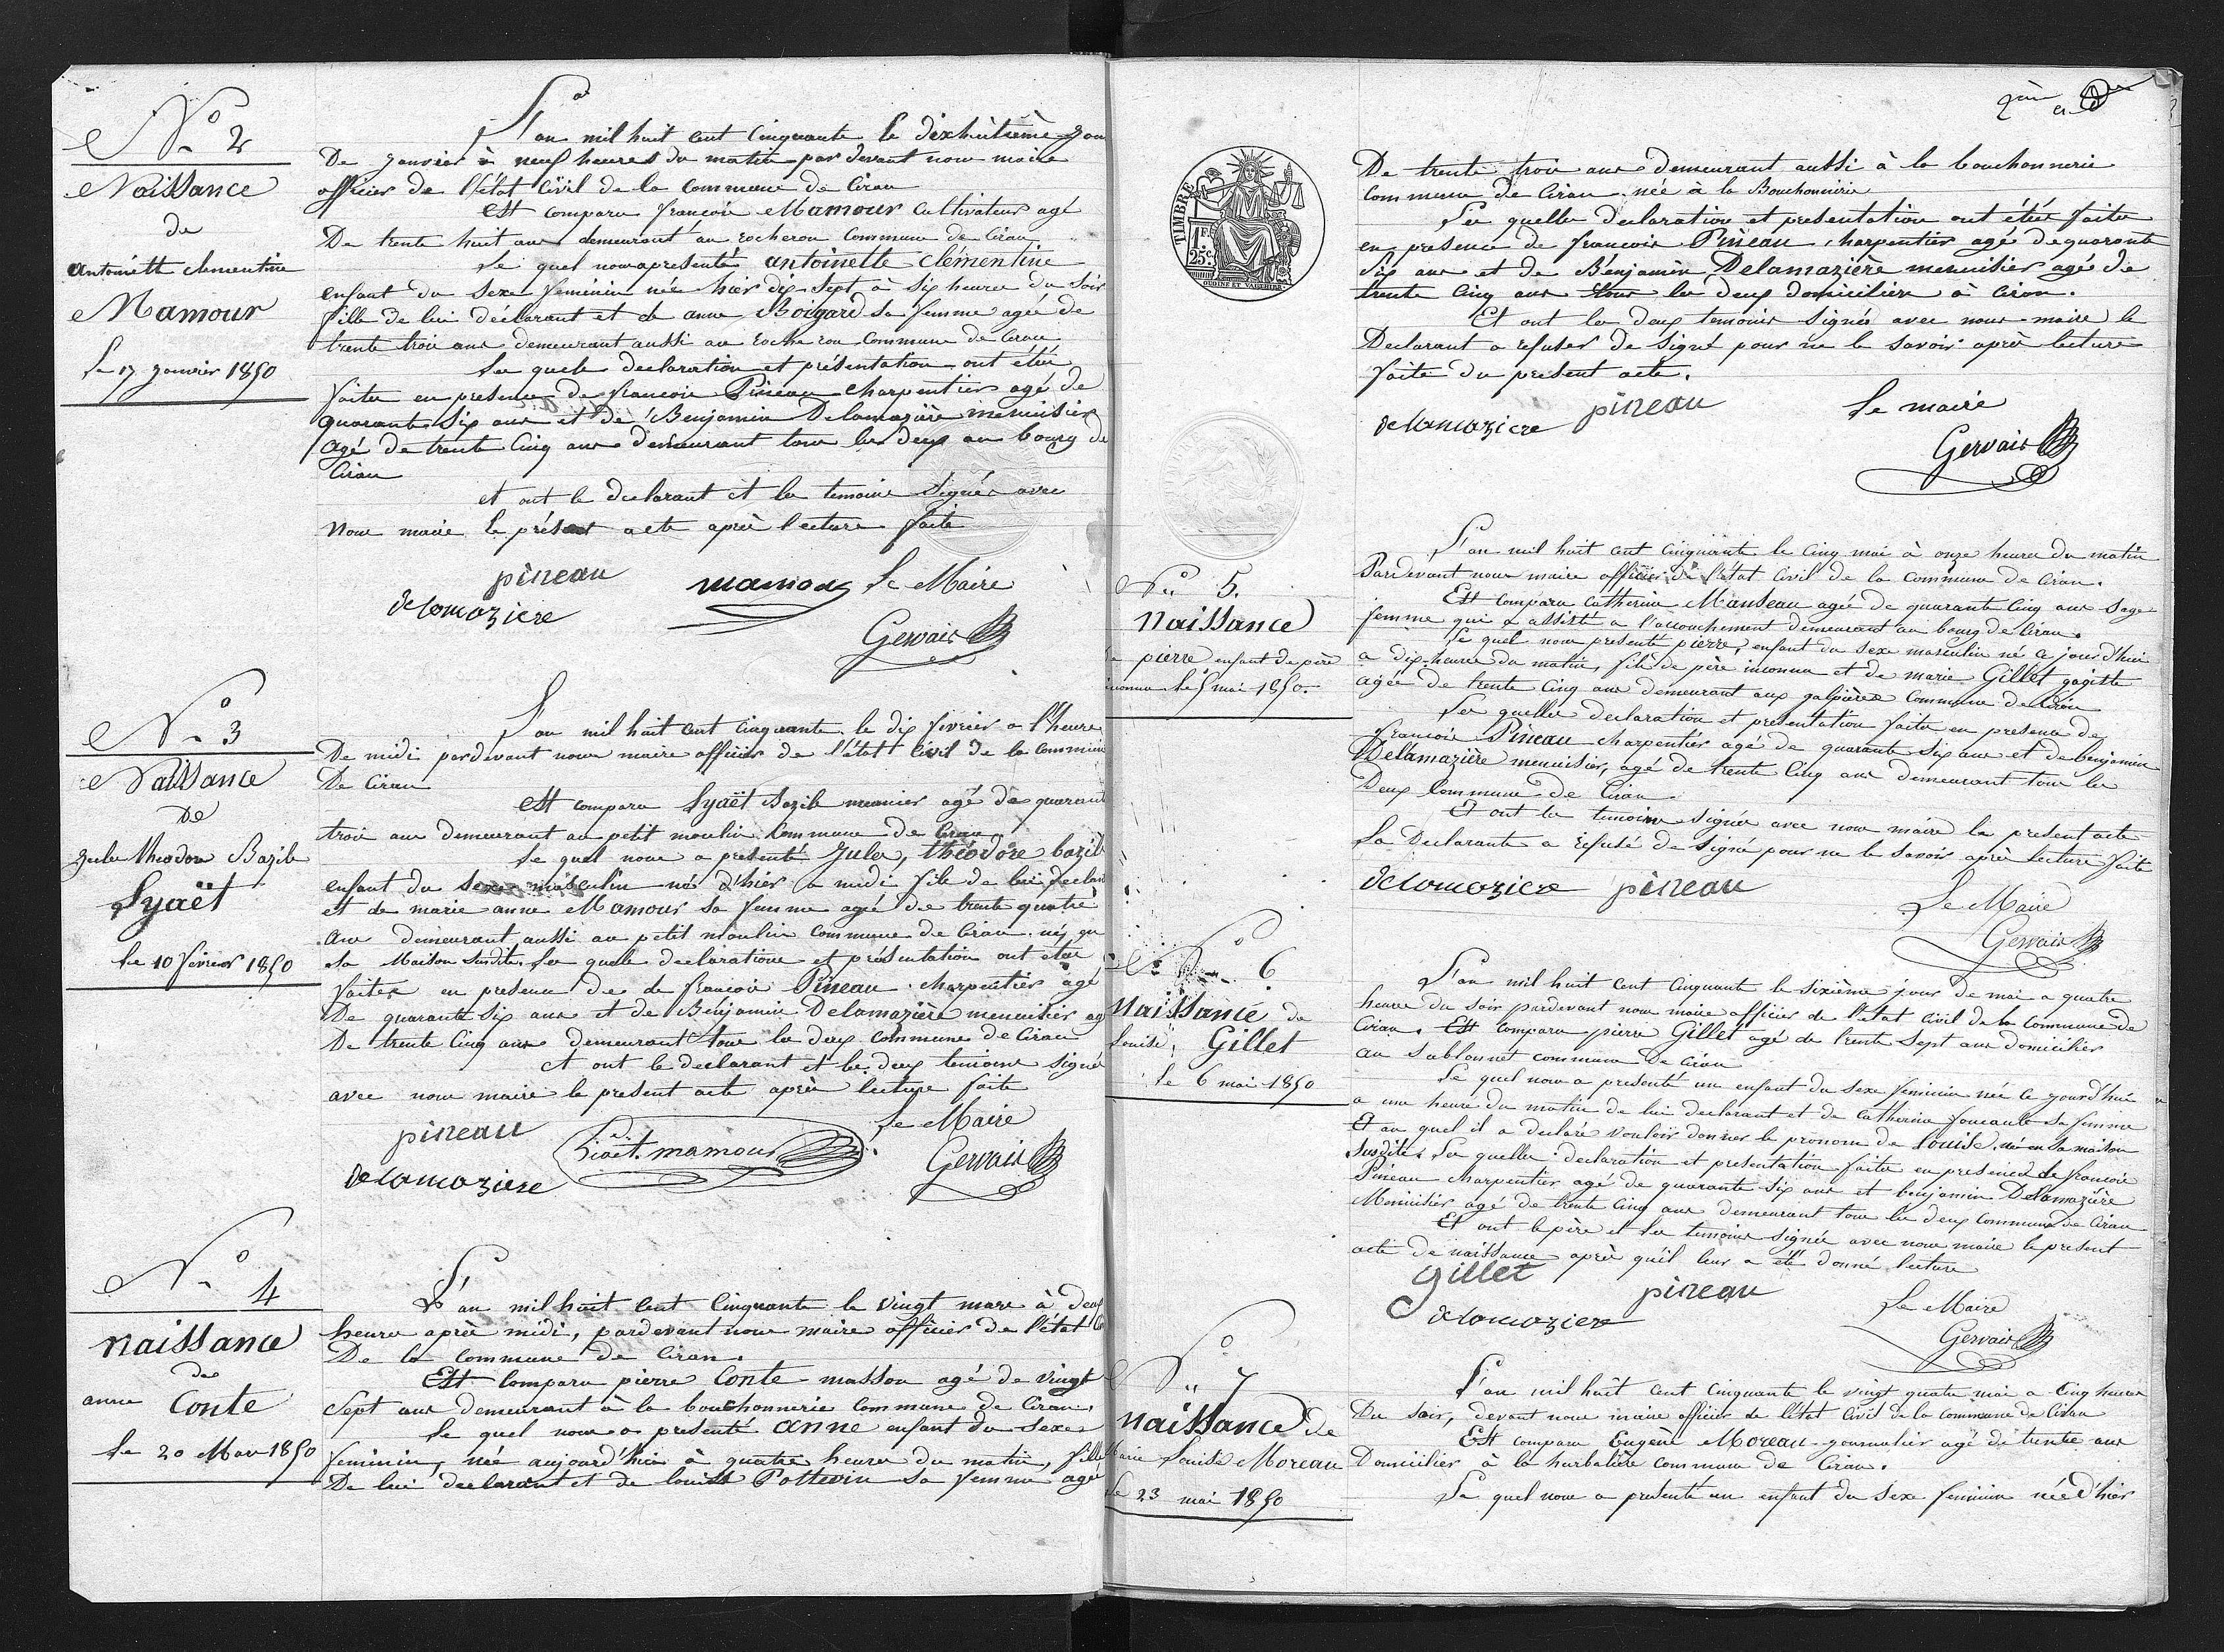 N° 2
Naissance
de
antoinett clementine
Mamour
Le 17 janvier 1850
L'an mil huit cent Cinquante le dixhuitième jour
De janvier à neuf heures du matin par devant nous maire
officier de l'état Civil de la Commune de Ciran
est comparu françois Mamour Cultivateur agé
De trente huit ans demeurant au rocheron Commune de Ciran
Le quel nous a presenté antoinette clémentine
enfant du Sexe feminin née hier dix Sept à Six heures du Soir
fille de lui déclarant et de anne Boigard Sa femme agée de
trente trois ans demeurant aussi au rocheron Commune de Ciran
Les quele declaration et présentation ont étée
faites en presence de francois Pineau charpentier agé de
quarante Six ans et de Benjamin Delamazière menuisier
agé de trente Cinq ans demeurant tous les deux au bourg de
Ciran
et ont le declarant et les temoins Signés avec
Nous maire le présent acte après lecture faite
pineau mamour Le Maire
delamoziere
Gervais
N° 3
Naissance
De
Jules theodore Bazile
Lyaët
Le 10 fevrier 1850
L'an mil huit cent Cinquante le dix fevrier a l'heure
De midi pardevant nous maire officier de l'état Civil de la Commune
De Ciran
est comparu Lyaët Bazile meunier agé de quarante
trois ans demeurant au petit moulin Commune de Ciran
Le quel nous a presenté Jules, théodore bazile
enfant du Sexe masculin né d'hier a midi fils de lui declarant
et de marie anne Mamour Sa femme agée de trente quatre
ans demeurant aussi au petit moulin Commune de Ciran né en
Sa Maison Susdite. Les quele declarations et présentation ont étée
faites en presence de de francois Pineau charpentier agé
De quarante Six ans et de Bénjamin Delamazière menuisier agé
De trente Cinq ans demeurant tous les deux Commune de Ciran
et ont le declarant et les deux temoins signé
avec nous maire le present acte après lecture faite
pineau mamour Le Maire
delamoziere Gervais
N° 4
naissance
de
anne Conte
Le 20 Mars 1850
L'an mil huit Cent Cinquante le vingt mars à deux
heures après midi, pardevant nous maire officier de l'état
De la Commune de Ciran.
Est Comparu pierre Conte masson agé de vingt
Sept ans demeurant à la bouchonnerie Commune de Ciran.
Le quel nous a presenté anne enfant du Sexe
feminin, née aujourd'hui à quatre heures du matin, fille
De lui declarant et de louise Pottevin Sa femme agée
TIMBRE
1F.
25c.
De trente trois ans demeurant aussi à la bouchonnerie
Commune de Ciran née à la Bouchonnerie
Les quelles declaration et presentation ont étée faites
en presence de francois Pineau charpentier agé de quarante
Six ans et de Bénjamin Delamazière menuisier agé de
trente Cinq ans tous les deux domiciliés à Ciran.
Et ont les deux temoins Signés avec nous maire le
Declarant a refuser de Signé pour ne le Savoir après lecture
faite du present acte.
delamoziere pineau Le maire
Gervais
N° 5.
Naissance
de pierre enfant de père
inconnu le 5 mai 1850.
L'an mil huit Cent Cinquante le Cinq mai à onze heures du matin
Pardevant nous maire officier de l'état Civil de la Commune de Ciran.
Est Comparu Catherine Manseau agée de quarante Cinq ans Sage
femme qui a assisté a l'accouchement demeurant au bourg de Ciran.
Le quel nous presenté pierre, enfant du Sexe masculin né a jourd'hui
a dix heures du matin, fils de père inconnu et de marie Gillet gagiste
agée de trente Cinq ans demeurant aux galpières Commune de Ciran
Les quelles declaration et presentation faites en presence de
francois Pineau charpentier agé de quarante Six ans et de benjamin
Delamazière menuisier, agé de trente Cinq ans demeurant tous les
Deux Commune de Ciran
Et ont les temoins signer avec nous maire le present acte
La Declarante a refusé de signé pour ne le Savoir après lecture faite
delamoziere pineau
Le Maire
Gervais
N° 6
Naissance de
Louise Gillet
le 6 mai 1850
L'an mil huit Cent Cinquante le Sixième jour de mai a quatre
heures du Soir pardevant nous maire officier de l'état Civil de la Commune de
Ciran. Est Comparu pierre Gillet agé de trente Sept ans domicilier
au Sablonnet commune de Ciran
Le quel nous a presenté un enfant du Sexe feminin née ce jourd'hui
a une heure du matin de lui declarant et de Catherine foucault Sa femme
Et au quel il a declaré vouloir donner le prenom de Louise née en Sa maison
Susdite. Les quelles declaration et presentation faites en presence de francois
Pineau charpentier agé de quarante Six ans et benjamin Delamazière
Menuisier agé de trente Cinq ans demeurant tous les deux Commune de Ciran
Et ont le père et les temoins signés avec nous maire le present
acte de naissance après qu'il leur a été donné lecture
Gillet pineau
delamoziere Le Maire
Gervais
N° 7
Naissance de
Marie Louise Moreau
le 23 mai 1850
L'an mil huit Cent Cinquante le vingt quatre mai a Cinq heures
Du Soir, devant nous maire officier de l'état Civil de la Commune de Ciran
Est comparu Eugène Moreau journalier agé de trente ans
Domicilier à la harbelière Commune de Ciran.
Le quel nous a presenté un enfant du Sexe feminin née d'hier